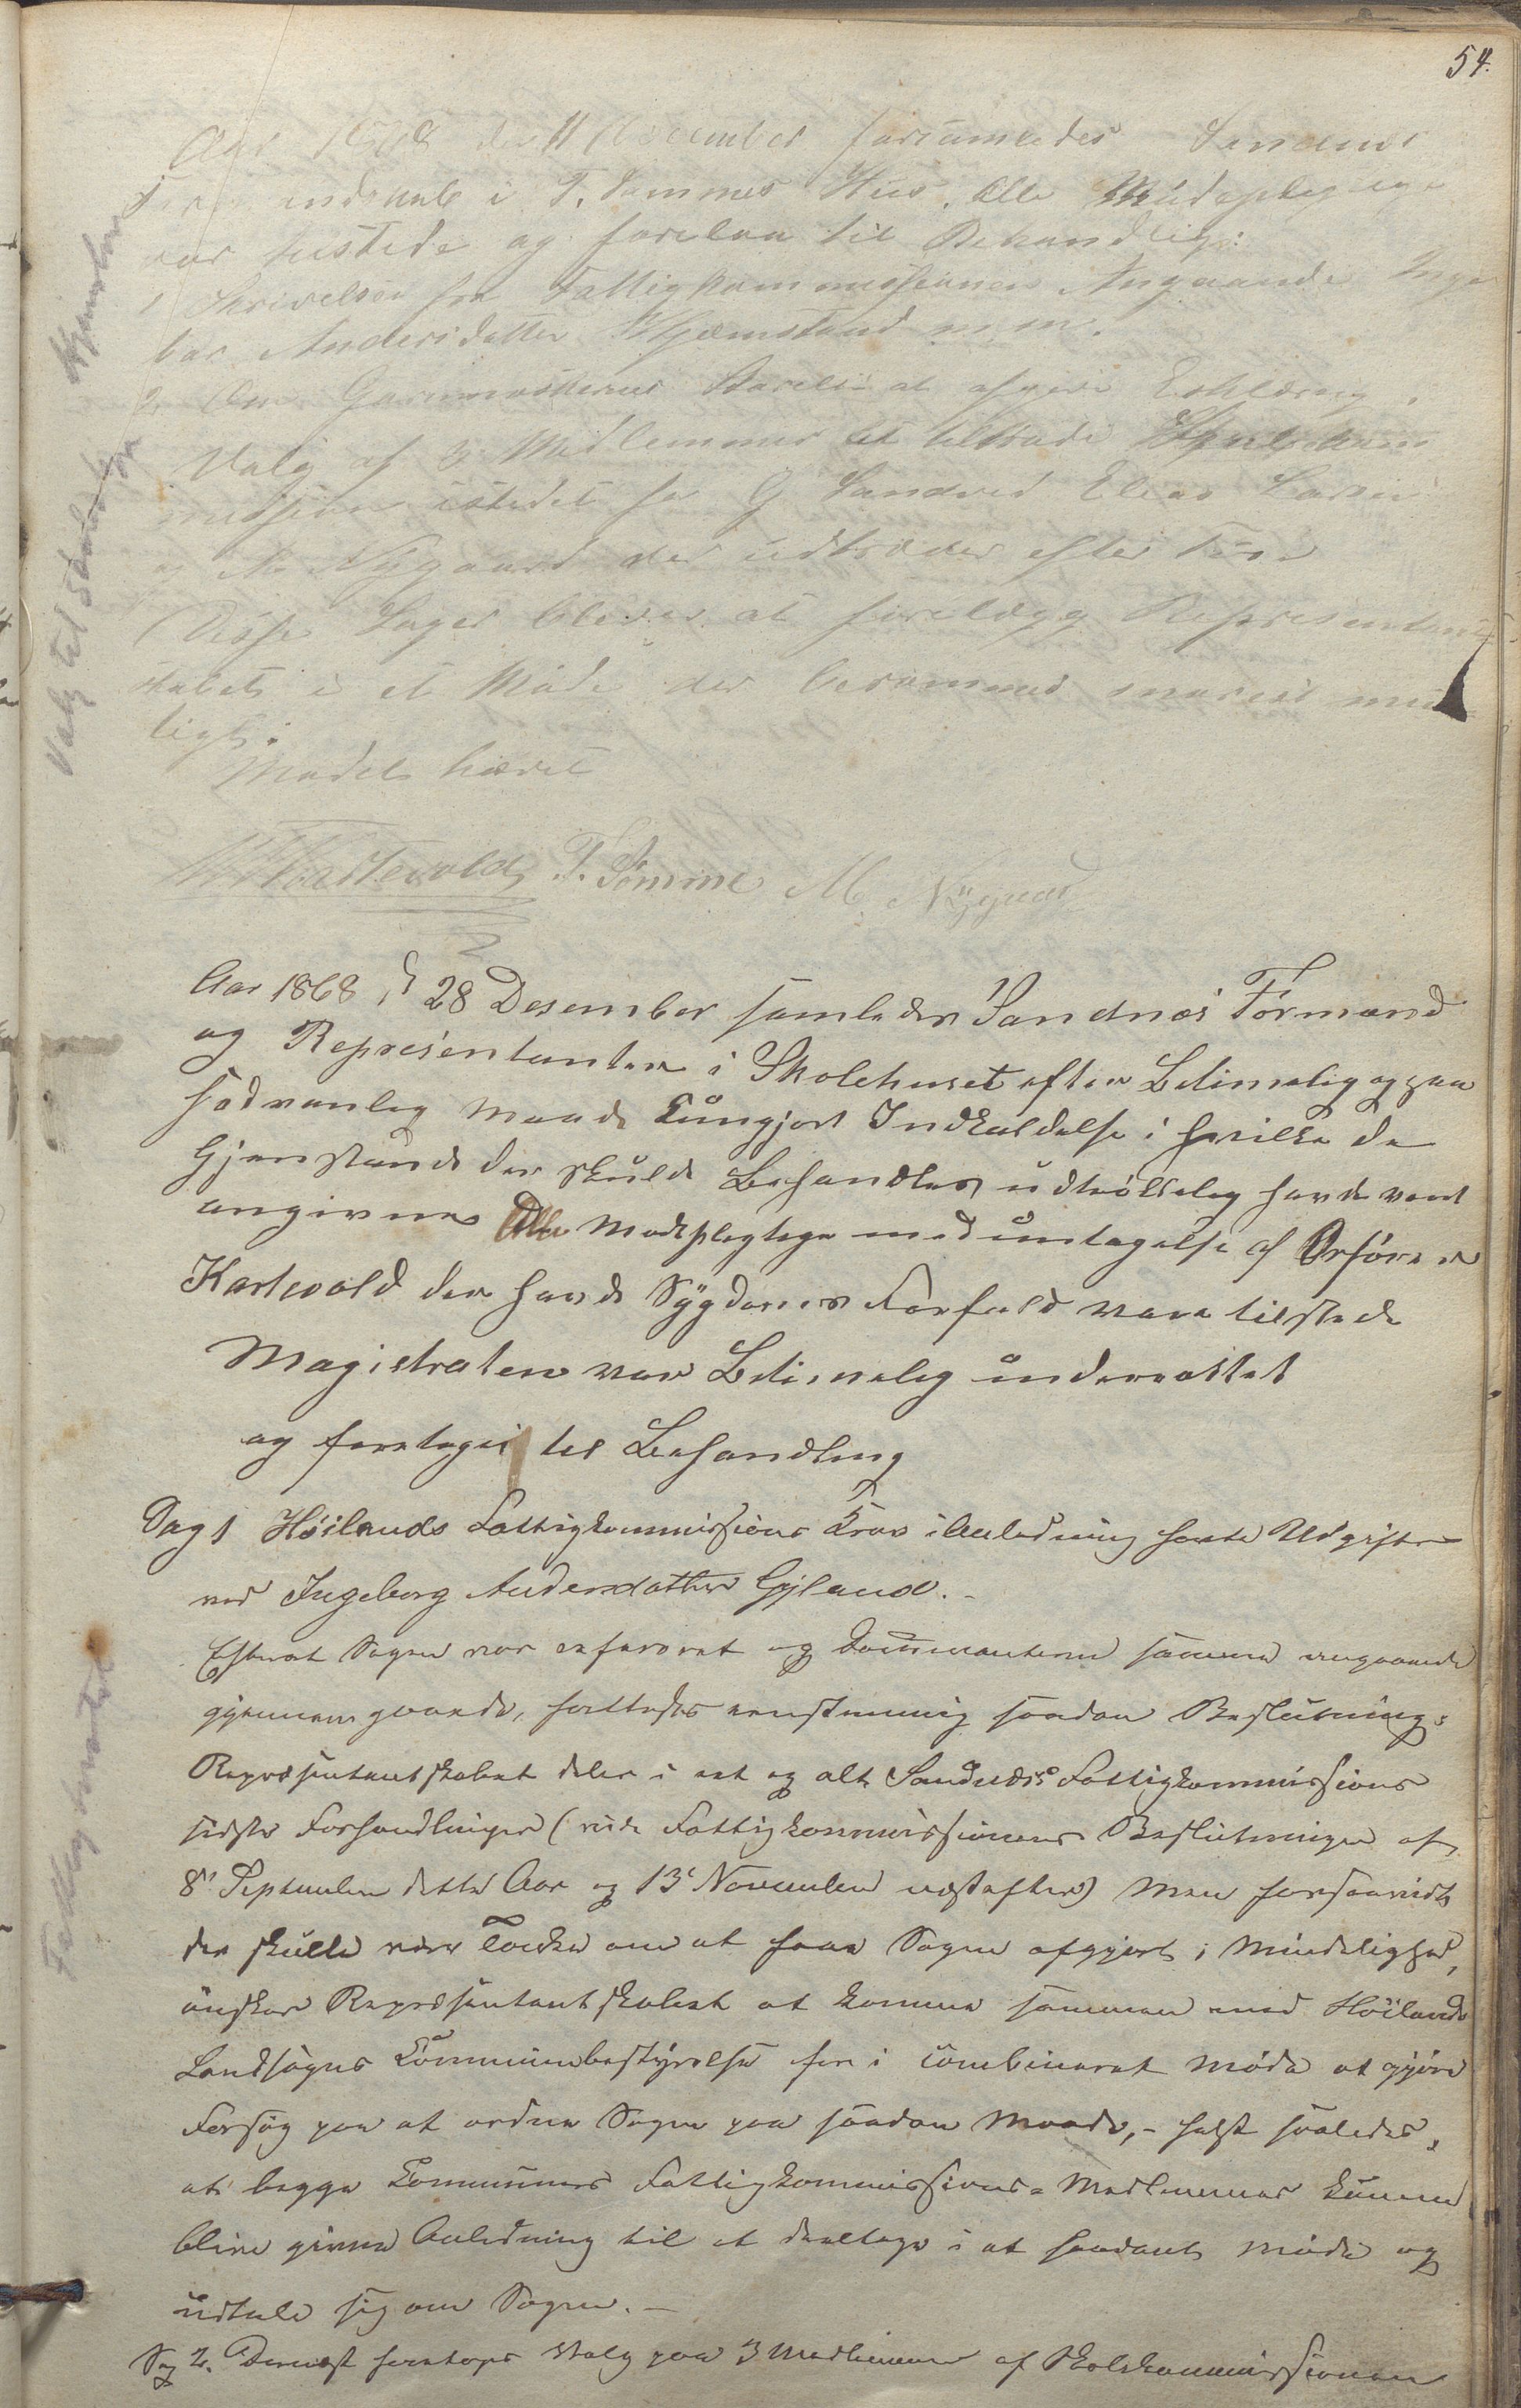 54.
Aar 1868 den 11 December forsamledes Sandnes
Formandskab i T. Sømmes Huus. Alle Mødepligtige
var tilstede og forelaa til Behandlig:
1 Skrivelse fra Fattigkommissionen Angaaende Inge
bor Andersdatter m.m.
2. Om at afgive Erklæring.
Valg af 3 Medlemmer til at tiltræde Skolekom
missionen istedet for G Sandved Elias Larsen
og M. Nygaard der udtræder efter Tur
Disse Sager bliver at forelægg Representant
skabet i et Møde der berammes snarest mu
ligt.
Mødet hævet
Kastevold T. Sømme M. Nygaard
Valg til Skolekom
Aar 1868 d 28 Desember samledes Sandnæs Formænd
og Representanter i Skolehuset efter Betimelig og paa
sædvanlig Maade kungjort Indkaldelse i hvilke de
Gjenstande der skulde Behandles udtrøkkelig havde været
angivnes Alle Mødepligtige med untagelse af Orføren
Kastevold der havde Sygdoms Forfald vare tilstede
Magistraten var Betimelig underrettet
og foretoges til Behandling
Sag 1 Høilands Fattigkommissions Krav i Anledning havte Udgifter
ved Ingeborg Andersdatter Gjiland. -
Efterat Sagen var refereret og Documenterne samme angaaende
gjennemgaaede, fattedes eenstemmig saadan Beslutning:
Repræsentantskabet deler i eet og alt Sandnæs Fattigkommissions
sidste Forhandlinger (vide Fattigkommissionens Beslutninger af
8' September dette Aar og 13' November næstefter) Men forsaavidt
der skulle være Tanke om at faae Sagen afgjort i Mindelighed,
ønsker Repræsentantskabet at komme sammen med Høilands
Landsogns Kommunebestyrelse for i combineret Møde at gjøre
Forsøg paa at ordne Sagen paa saadan Maade, - helst saaledes,
at begge Kommuners Fattigkommissions-Medlemmer kunne
blive given Anledning til at deeltage i et saadant Møde og
udtale sig om Sagen. -
Sag 2. Dernæst foretoges Valg paa 3 Medlemmer af Skolekommissionen